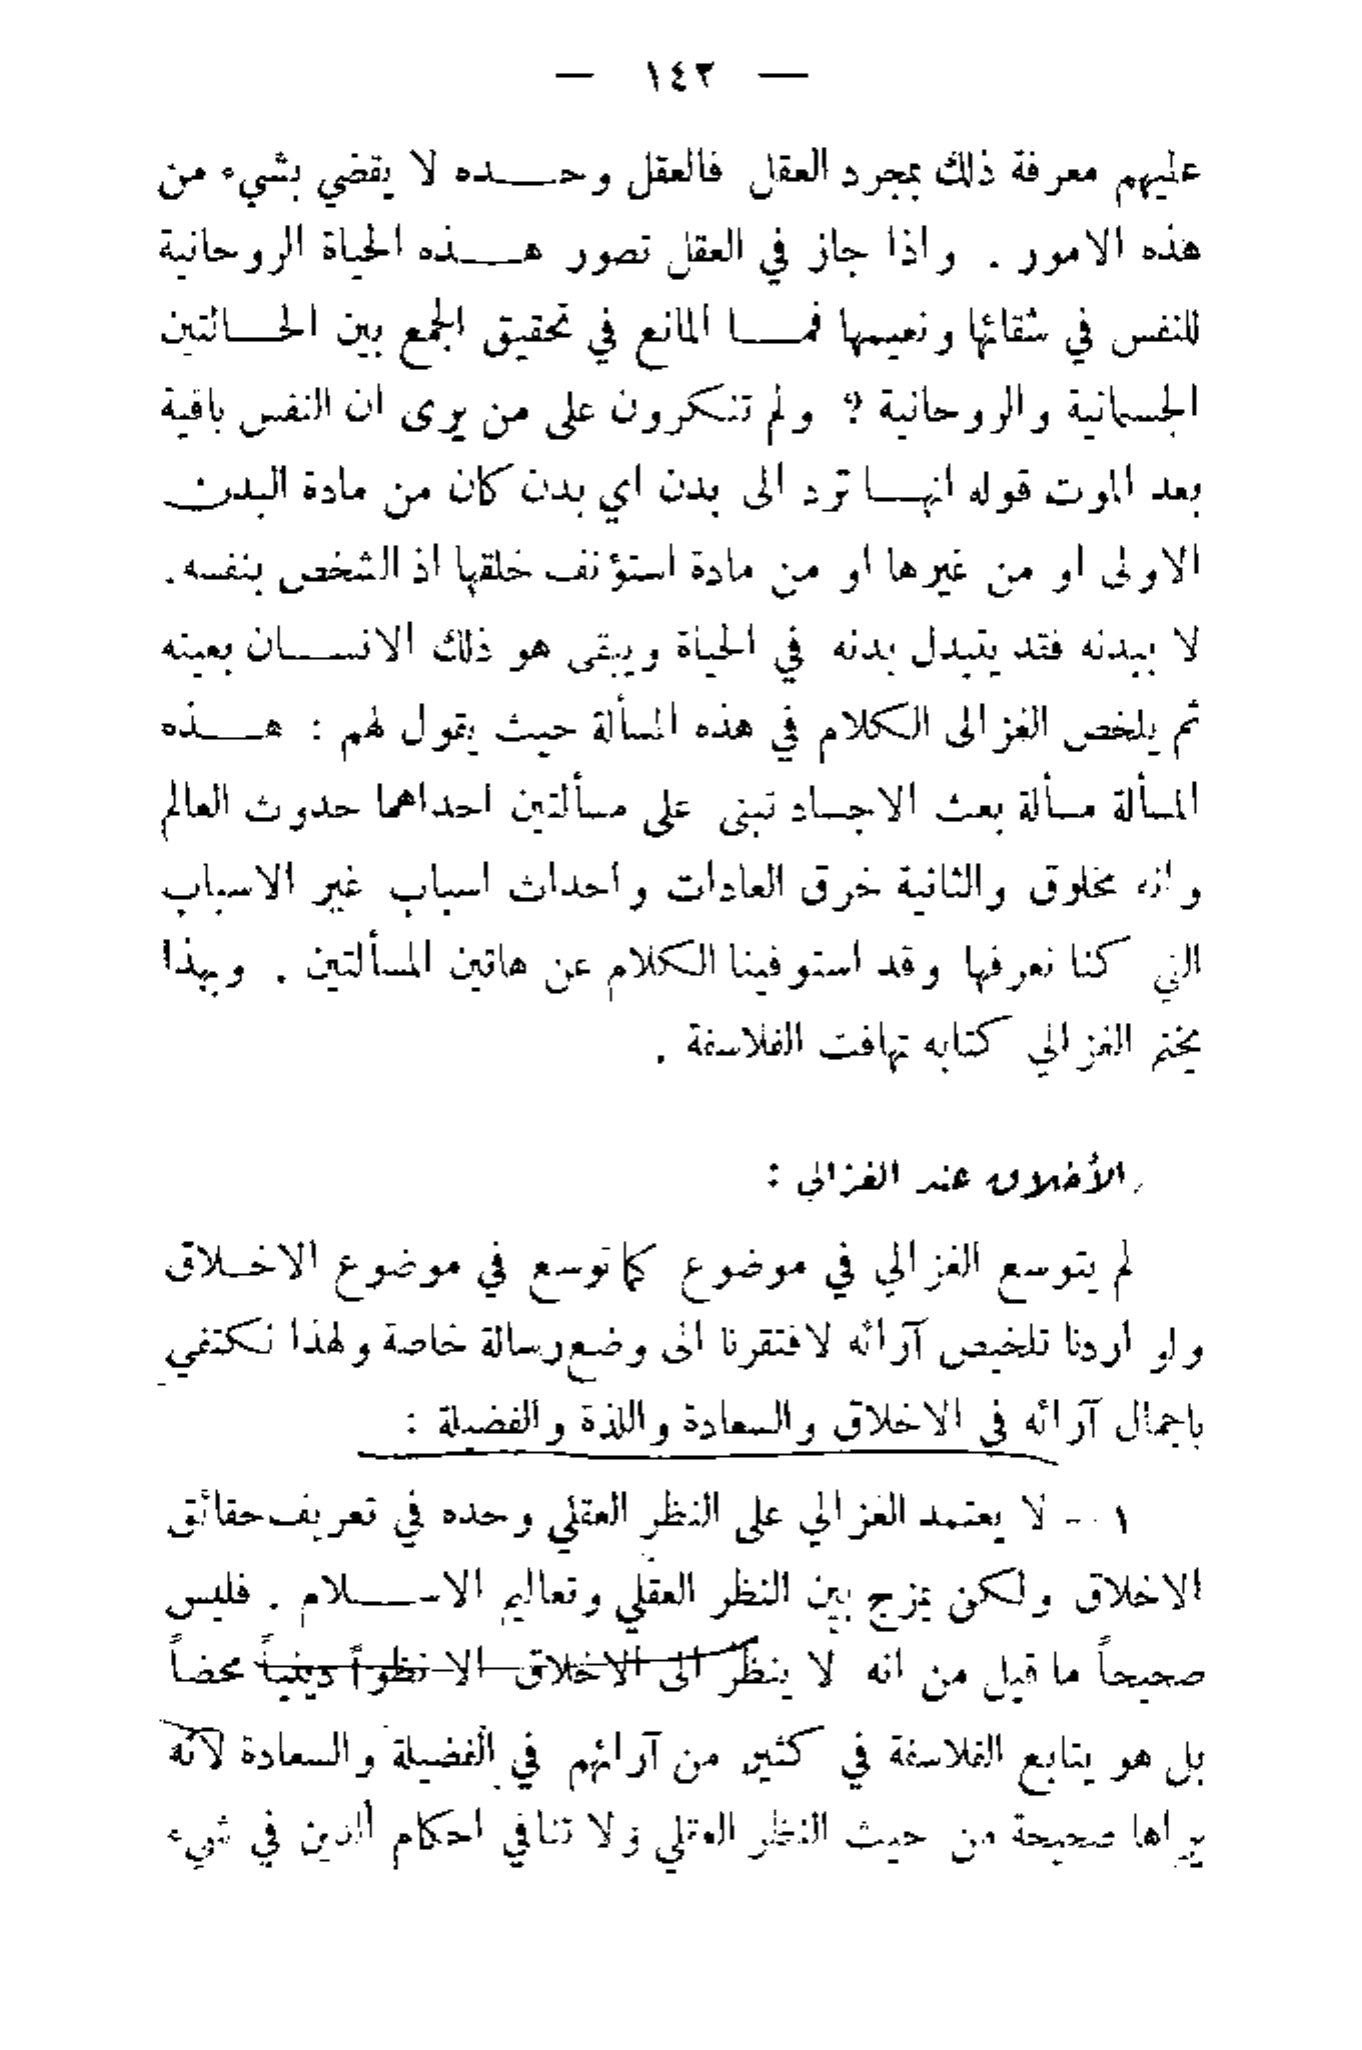 — ١٤٢ —
عليهم معرفة ذلك بمجرد العقل فالعقل وحده لا يقضي بشيء من
هذه الامور . واذا جاز في العقل تصور هذه الحياة الروحانية
للنفس في شقائها ونعيمها فما المانع في تحقيق الجمع بين الحالتين
الجسمانية والروحانية ؟ ولم تنكرون على من يرى ان النفس باقية
بعد الموت قوله انها ترد الى بدن اي بدن كان من مادة البدن
الاولى او من غيرها او من مادة استؤنف خلقها اذ الشخص بنفسه .
لا ببدنه فقد يتبدل بدنه في الحياة ويبقى هو ذلك الانسان بعينه
ثم يلخص الغزالى الكلام في هذه المسألة حيث يقول لهم : هذه
المسألة مسألة بعث الاجساد تبنى على مسألتين احداهما حدوث العالم
وانه مخلوق والثانية خرق العادات واحداث اسباب غير الاسباب
التي كنا نعرفها وقد استوفينا الكلام عن هاتين المسألتين . وبهذا
يختم الغزالي كتابه تهافت الفلاسفة .
الأخلاق عند الغزالي :
لم يتوسع الغزالي في موضوع كما توسع في موضوع الاخلاق
ولو اردنا تلخيص آرائه لافتقرنا الى وضع رسالة خاصة ولهذا نكتفي
باجمال آرائه في الاخلاق والسعادة واللذة والفضيلة :
١ - لا يعتمد الغزالي على النظر العقلي وحده في تعريف حقائق
الاخلاق ولكن يمزج بين النظر العقلي وتعاليم الاسلام . فليس
صحيحاً ما قيل من انه لا ينظر الى الاخلاق الا نظراً دينياً محضاً
بل هو يتابع الفلاسفة في كثير من آرائهم في الفضيلة والسعادة لانه
يراها صحيحة من حيث النظر العقلي ولا تنافي احكام الدين في شيء